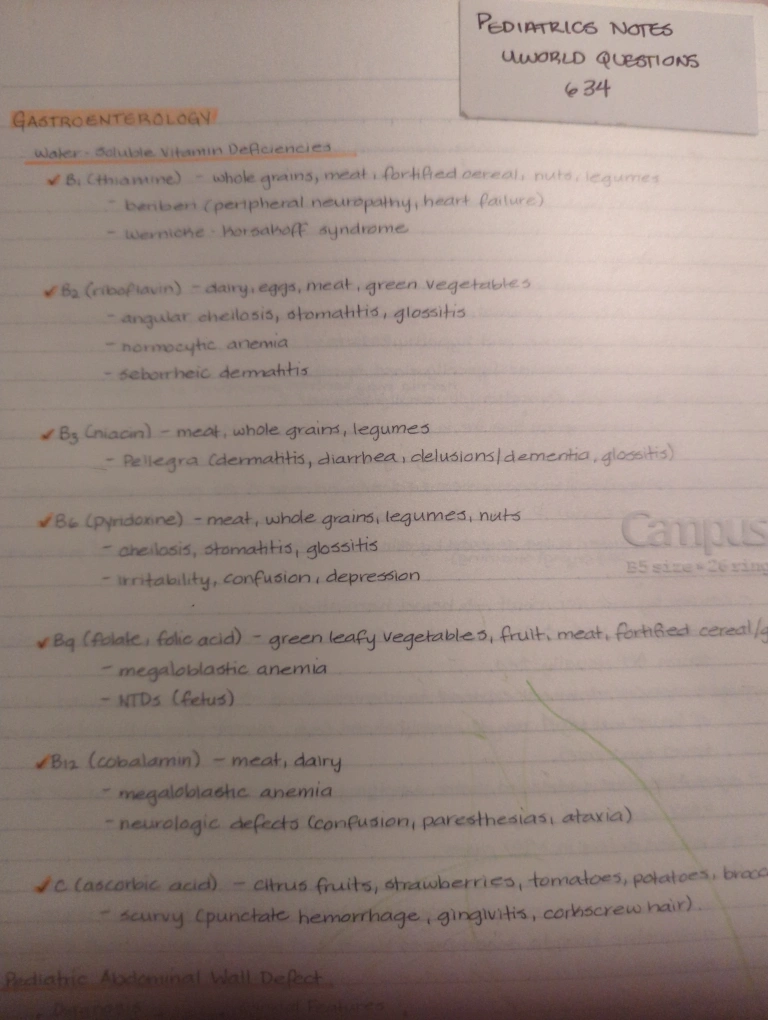 PEDIATRICS NOTES
UWORLD QUESTIONS
634
GASTROENTEROLOGY
Water-Soluble Vitamin Deficiencies
✓ B1 (thiamine) - whole grains, meat, fortified cereal, nuts, legumes
- beriberi (peripheral neuropathy, heart failure)
- Wernicke-Korsakoff syndrome
✓ B2 (riboflavin) - dairy, eggs, meat, green vegetables
- angular cheilosis, stomatitis, glossitis
- normocytic anemia
- seborrheic dermatitis
✓ B3 (niacin) - meat, whole grains, legumes
- Pellegra (dermatitis, diarrhea, delusions/dementia, glossitis)
✓ B6 (pyridoxine) - meat, whole grains, legumes, nuts
- cheilosis, stomatitis, glossitis
- irritability, confusion, depression
Campus
B5 size • 26 ring
✓ B9 (folate, folic acid) - green leafy vegetables, fruit, meat, fortified cereal/g
- megaloblastic anemia
- NTDs (fetus)
✓ B12 (cobalamin) - meat, dairy
- megaloblastic anemia
- neurologic defects (confusion, paresthesias, ataxia)
✓ C (ascorbic acid) - citrus fruits, strawberries, tomatoes, potatoes, brocc
- scurvy (punctate hemorrhage, gingivitis, corkscrew hair).
Pediatric Abdominal Wall Defect
Diagnosis Features